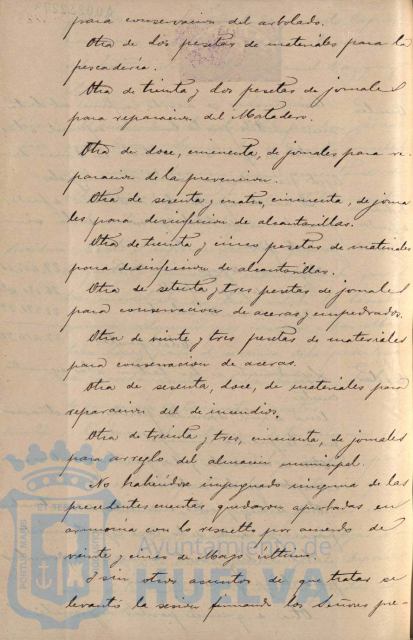 para conservacion del arbolado.
Otra de dos pesetas de materiales para la
pescadería.
Otra de treinta y dos pesetas de jornales
para reparacion del Matadero.
Otra de doce, cincuenta, de jornales para re-
paracion de la prevencion.
Otra de sesenta y cuatro, cincuenta, de jorna
les para desinfeccion de alcantarillas.
Otra de treinta y cinco pesetas de materiales
para desinfeccion de alcantarillas.
Otra de setenta y tres pesetas de jornales
para conservacion de aceras y empedrados.
Otra de veinte y tres pesetas de materiales
para conservacion de aceras.
Otra de sesenta, doce, de materiales para
reparacion del de incendios.
Otra de treinta y tres, cincuenta, de jornales
para arreglo del almacen municipal.
No habiéndose impugnado ninguna de las
precedentes cuentas quedaron aprobadas en
armonia con lo resuelto por acuerdo de
veinte y cinco de Mayo último.
Y sin otros asuntos de que tratar se
levantó la sesion firmando los Señores pre-
Ayuntamiento de
HUELVA
PORTUS MARIS